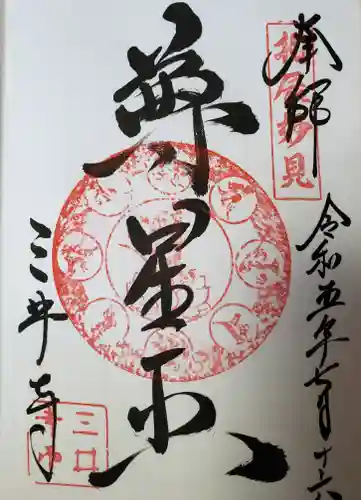 奉拝
妙見
令和五年七月十六
尊星王
三井寺
三井
寺印